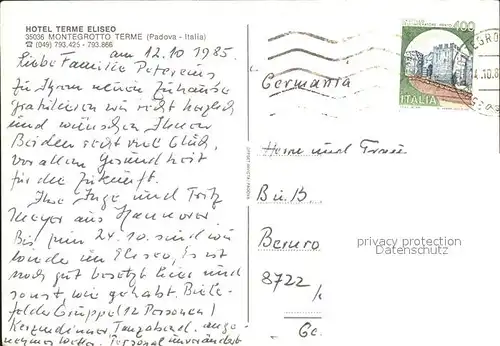 HOTEL TERME ELISEO
35036 MONTEGROTTO TERME (Padova - Italia)
☎ (049) 793.425 - 793.866
am 12.10 1985.
Liebe Familie Petersens
zu Ihrem neuen Zuhause
gratulieren wir recht herzlich
und wünschen Ihnen
Beiden recht viel Glück,
vor allem Gesundheit
für die Zukunft.
Ihre Inge und Fritz
Meyer aus Hannover
Bis zum 24.10. sind wir
wieder im Eliseo, es ist
noch gut besetzt hier und
sonst, wie gehabt. Biele-
felder Gruppe (12 Personen)
Kerzendinner, Tanzabend, ange-
nehmes Wetter. Personal unverändert
400
ITALIA
Germania
Herrn und Frau
8722
privacy protection
Datenschutz